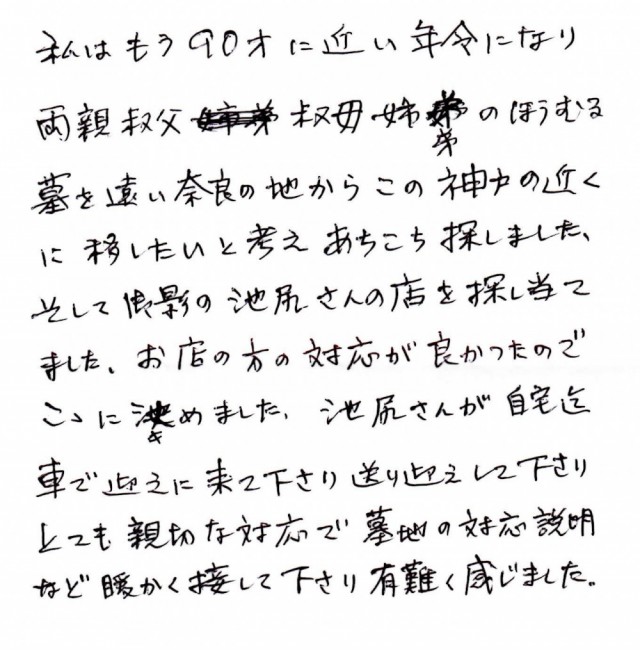 私はもう90才に近い年令になり
両親叔父叔母姉弟のほうむる
墓を遠い奈良の地からこの神戸の近く
に移したいと考えあちこち探しました、
そして御影の池尻さんの店を探し当て
ました、お店の方の対応が良かったので
こゝに決めました、池尻さんが自宅迄
車で迎えに来て下さり送り迎えして下さり
とても親切な対応で墓地の対応説明
など暖かく接して下さり有難く感じました。